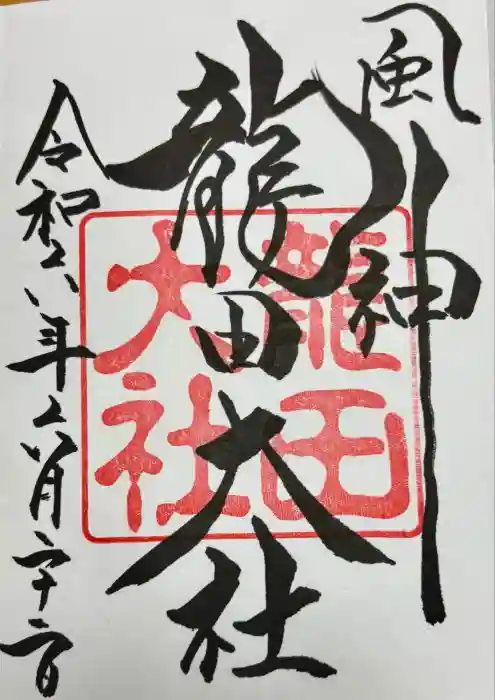 風神
龍田大社
龍田
大社
令和六年六月二十二日